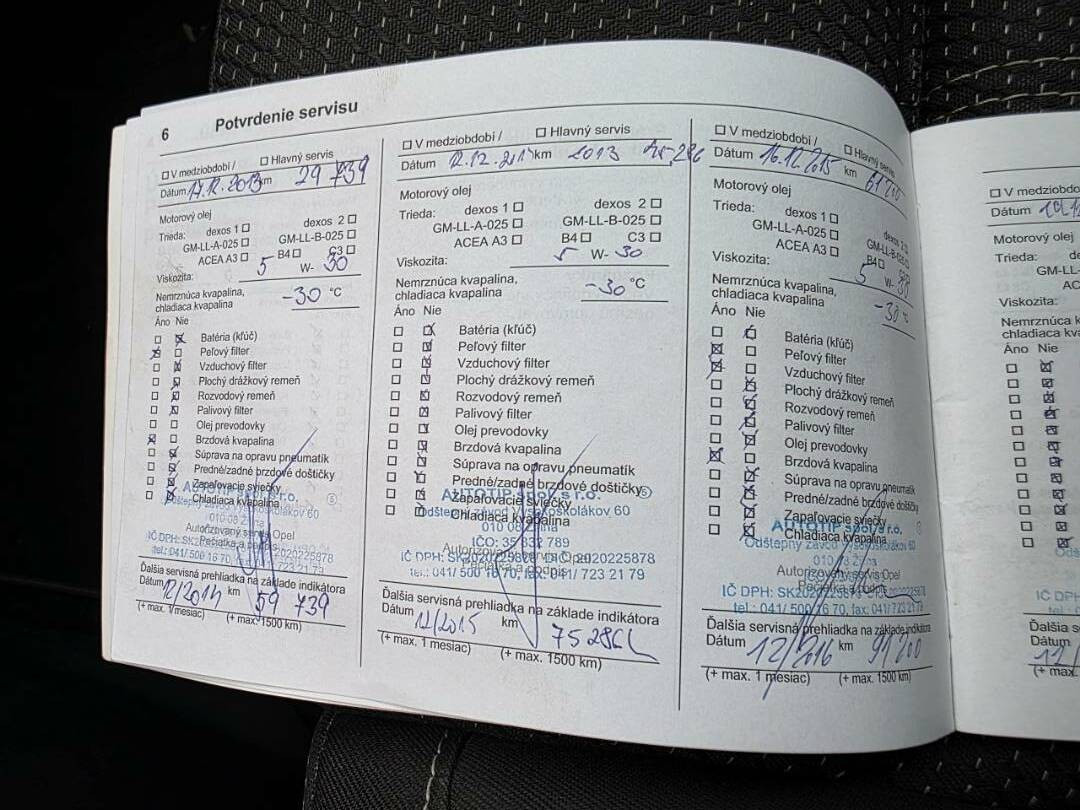 6 Potvrdenie servisu
V medziobdobí / Hlavný servis
Dátum 17.12.2013 km 29 739
Motorový olej
Trieda: dexos 1 dexos 2
GM-LL-A-025 GM-LL-B-025
ACEA A3 B4 C3
Viskozita: 5 W- 30
Nemrznúca kvapalina,
chladiaca kvapalina -30 °C
Áno Nie
Batéria (kľúč)
Peľový filter
Vzduchový filter
Plochý drážkový remeň
Rozvodový remeň
Palivový filter
Olej prevodovky
Brzdová kvapalina
Súprava na opravu pneumatík
Predné/zadné brzdové doštičky
Zapaľovacie sviečky
Chladiaca kvapalina
AUTOTIP spol. s r.o.
Odštepný závod Vysokoškolákov 60
010 08 Žilina
Autorizovaný servis Opel
Pečiatka a podpis
tel.: 041/ 500 16 70, fax: 041/ 723 21 79
Ďalšia servisná prehliadka na základe indikátora
Dátum 12/2014 km 59 739
(+ max. 1 mesiac) (+ max. 1500 km)
V medziobdobí / Hlavný servis
Dátum 12.12.2014 km
Motorový olej
Trieda: dexos 1 dexos 2
GM-LL-A-025 GM-LL-B-025
ACEA A3 B4 C3
Viskozita: 5 W- 30
Nemrznúca kvapalina,
chladiaca kvapalina -30 °C
Áno Nie
Batéria (kľúč)
Peľový filter
Vzduchový filter
Plochý drážkový remeň
Rozvodový remeň
Palivový filter
Olej prevodovky
Brzdová kvapalina
Súprava na opravu pneumatík
Predné/zadné brzdové doštičky
Zapaľovacie sviečky
Chladiaca kvapalina
AUTOTIP spol. s r.o.
Odštepný závod Vysokoškolákov 60
010 08 Žilina
IČO: 35 832 789
Autorizovaný servis Opel
IČ DPH: SK2020225878 DIČ: 2020225878
Pečiatka a podpis
tel.: 041/ 500 16 70, fax: 041/ 723 21 79
Ďalšia servisná prehliadka na základe indikátora
Dátum 12/2015 km 75286
(+ max. 1 mesiac) (+ max. 1500 km)
V medziobdobí / Hlavný servis
Dátum 16.12.2015 km 61 200
Motorový olej
Trieda: dexos 1 dexos 2
GM-LL-A-025 GM-LL-B-025
ACEA A3 B4
Viskozita: 5 W- 30
Nemrznúca kvapalina,
chladiaca kvapalina -30 °C
Áno Nie
Batéria (kľúč)
Peľový filter
Vzduchový filter
Plochý drážkový remeň
Rozvodový remeň
Palivový filter
Olej prevodovky
Brzdová kvapalina
Súprava na opravu pneumatík
Predné/zadné brzdové doštičky
Zapaľovacie sviečky
Chladiaca kvapalina
AUTOTIP spol. s r.o.
Odštepný závod Vysokoškolákov 60
010 08 Žilina
Autorizovaný servis Opel
Pečiatka a podpis
IČ DPH: SK2020225878
tel.: 041/ 500 16 70, fax: 041/ 723 21 79
Ďalšia servisná prehliadka na základe indikátora
Dátum 12/2016 km 91 200
(+ max. 1 mesiac) (+ max. 1500 km)
V medziobdo
Dátum
Motorový olej
Trieda: de
GM-LL-
AC
Viskozita:
Nemrznúca k
chladiaca kva
Áno Nie
Ďalšia se
Dátum 12/
(+ max.